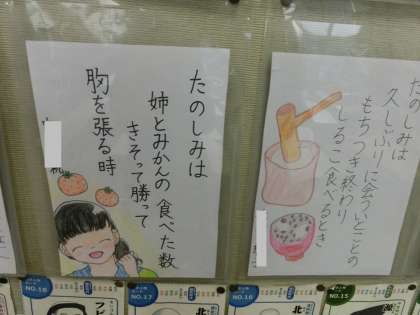 たのしみは
姉とみかんの食べた数
きそって勝って
胸を張る時
たのしみは
久しぶりに会ういとことの
もちつき終わり
しるこ食べるとき
NO.16
NO.17
NO.16
NO.15
北
北